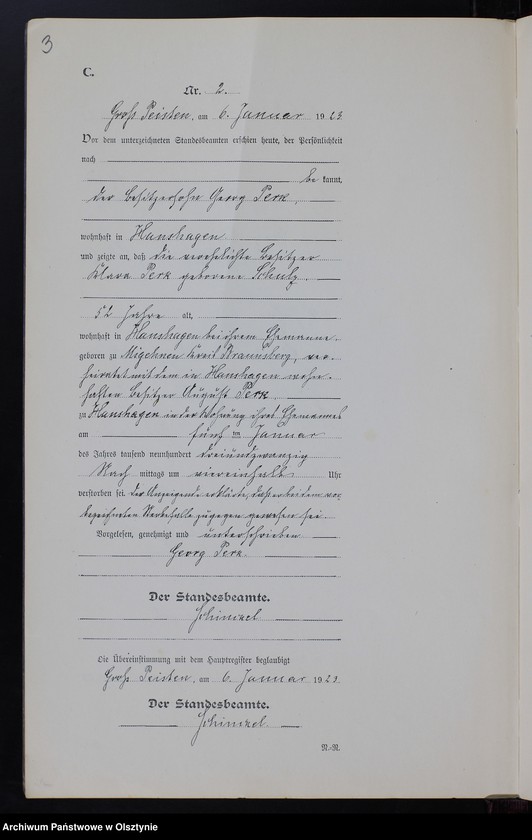 3
C.
Nr. 2.
Groß Peisten, am 6. Januar 1923.
Vor dem unterzeichneten Standesbeamten erschien heute, der Persönlichkeit
nach
be kannt,
der Besitzersohn Georg Perk
wohnhaft in Hanshagen
und zeigte an, daß die verehelichte Besitzer
Klara Perk geborene Schulz,
52 Jahre alt,
wohnhaft in Hanshagen bei ihrem Ehemanne,
geboren zu Migehnen Kreis Braunsberg, ver-
heiratet mit dem in Hanshagen wohn-
haften Besitzer August Perk,
zu Hanshagen in der Wohnung ihres Ehemannes
am fünf ten Januar
des Jahres tausend neunhundert dreiundzwanzig
Nach mittags um viereinhalb Uhr
verstorben sei. Der Anzeigende erklärte, daß er bei dem vor
bezeichneten Sterbefalle zugegen gewesen sei.
Vorgelesen, genehmigt und unterschrieben
Georg Perk.
Der Standesbeamte.
Schinkel
Die Übereinstimmung mit dem Hauptregister beglaubigt
Groß Peisten, am 6. Januar 1923.
Der Standesbeamte.
Schinkel.
N.-R.
Archiwum Państwowe w Olsztynie